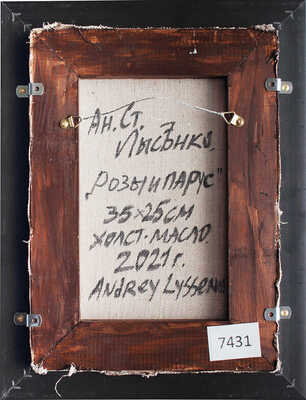 Ан. Ст.
Лысѣнко.
"Розы и парус"
35×25 см
холст. масло.
2021 г.
Andrey Lyssenko
7431